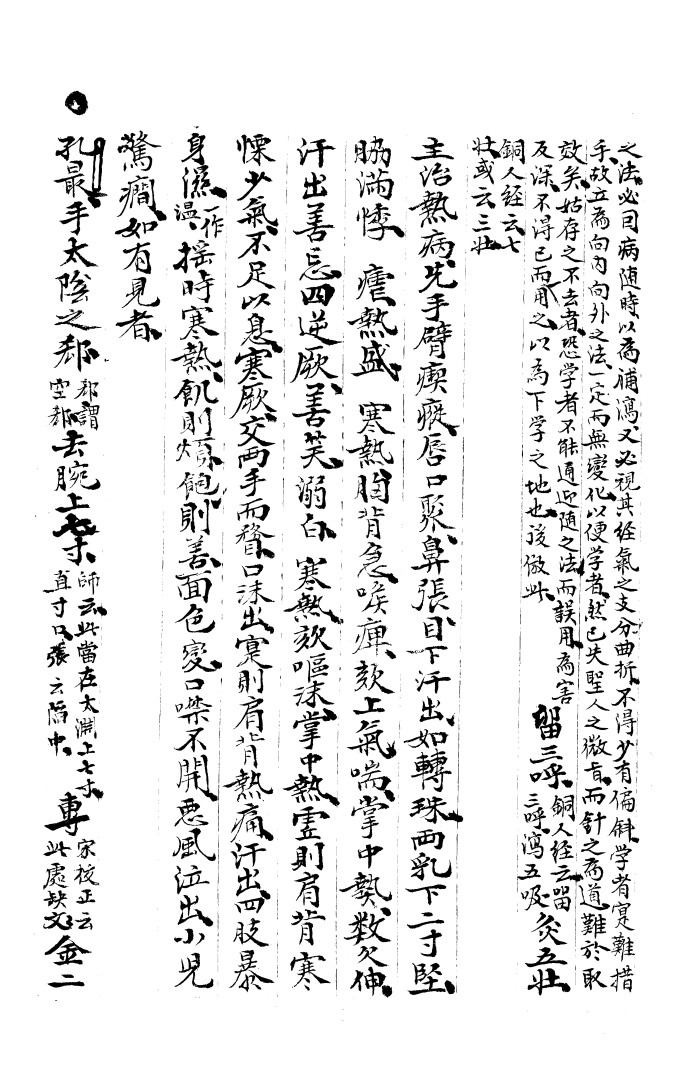 之法必因病随時以為浦瀉又必視其経氣之支分曲折不得少有偏斜学者寔難措
手故立為向内向外之法一定而無變化以便学者然已失聖人之微旨而針之為道難於取
效矣姑存之不去者恐学者不能通迎随之法而誤用為害
及深不得已而用之以為下学之地也後倣此
留三呼
銅人経云留
三呼瀉五吸
灸五壮
銅人経云七
壮或云三壮
主治熱病先手臂瘈瘲唇口聚鼻張目下汗出如轉珠両乳下二寸堅
脇滿悸 瘧熱盛 寒熱胸背急喉痺欬上氣喘掌中熱数欠伸
汗出善忘四逆厥善笑溺白 寒熱欬嘔沫掌中熱虚則肩背寒
慄少氣不足以息寒厥交両手而瞀口沫出寔則肩背熱痛汗出四肢暴
身濕
一作
温
揺時寒熱飢則煩飽則善面色變口噤不開悪風泣出小児
驚癇如有見者
孔最手太陰之郄
郄謂
空郄
去腕上七寸
師云此當在太淵上七寸
直寸口張云陷中
專
宋校正云
此處缺文
金二